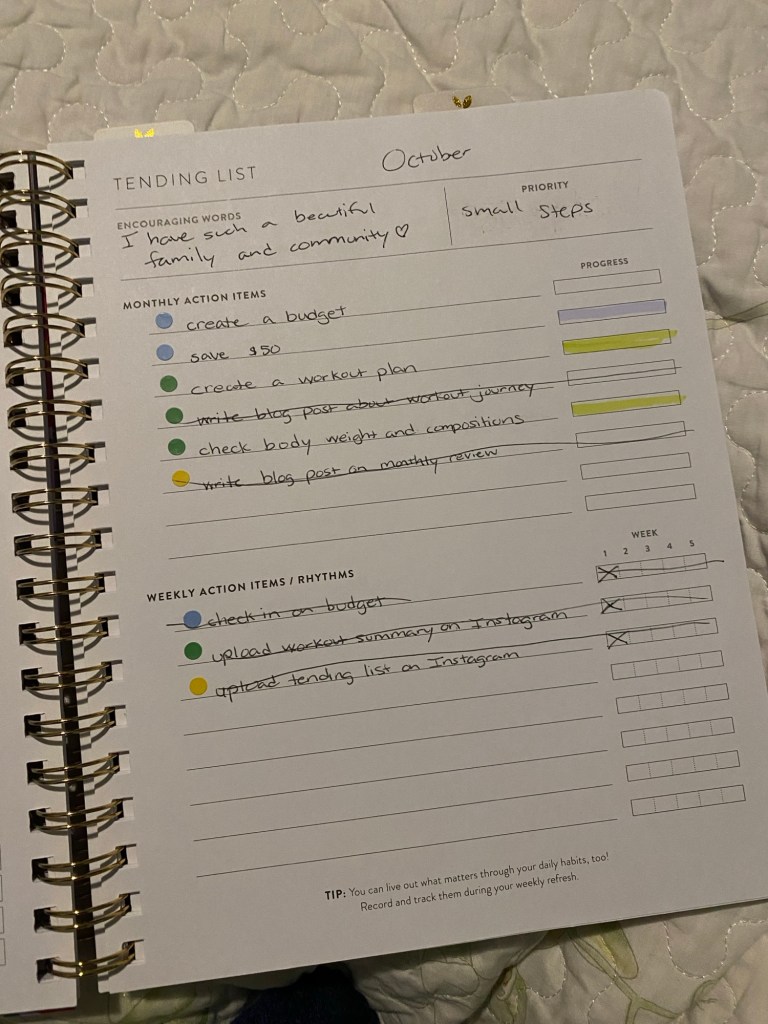 TENDING LIST October
ENCOURAGING WORDS
I have such a beautiful
family and community ♡
PRIORITY
small steps
MONTHLY ACTION ITEMS PROGRESS
create a budget
save $50
create a workout plan
write blog post about workout journey
check body weight and compositions
write blog post on monthly review
WEEKLY ACTION ITEMS / RHYTHMS WEEK
1 2 3 4 5
check in on budget
upload workout summary on Instagram
upload tending list on Instagram
TIP: You can live out what matters through your daily habits, too!
Record and track them during your weekly refresh.